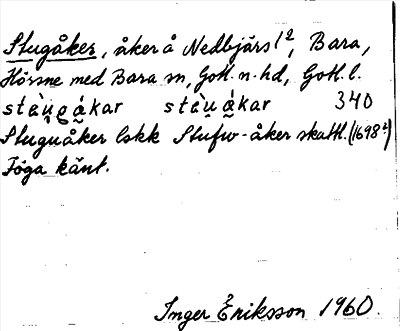 Stugåker, åker å Nedbjärs 1², Bara,
Hörsne med Bara sn, Gotl. n. hd, Gotl. l.
stàu̯gákar stàu̯ákar 340
Stuguåker lskk Stufw-åker skattl. (1698²)
Föga känt.
Inger Eriksson 1960.